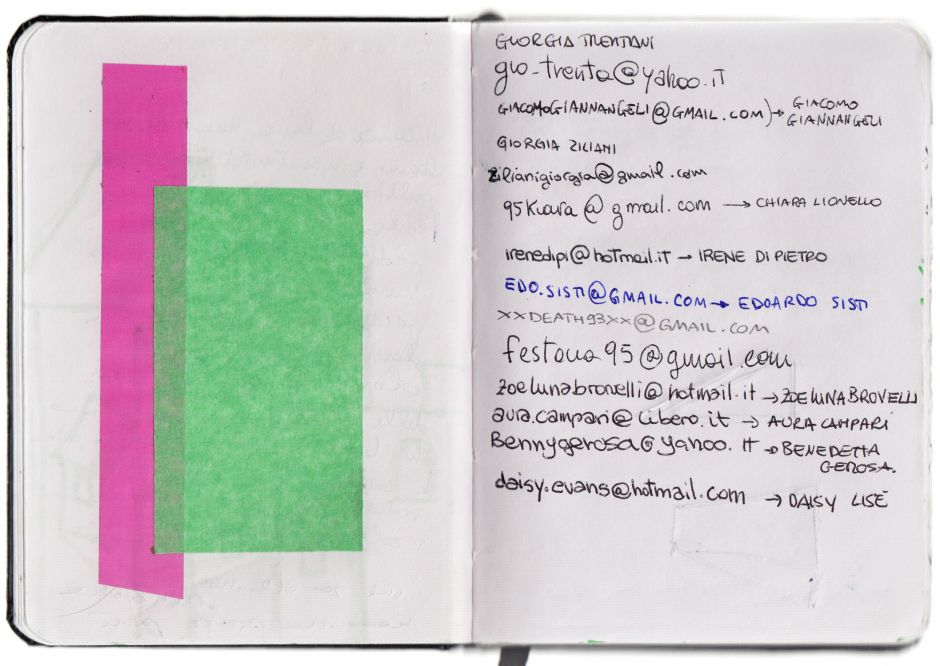 GIORGIA TRENTANI
gio_trenta@yahoo.it
GIACOMOGIANNANGELI@GMAIL.COM) → GIACOMO
GIANNANGELI
GIORGIA ZILIANI
zilianigiorgia@gmail.com
95Kiara@gmail.com → CHIARA LIONELLO
irenedipi@hotmail.it → IRENE DI PIETRO
EDO.SISTI@GMAIL.COM → EDOARDO SISTI
XXDEATH93XX@GMAIL.COM
festaua95@gmail.com
zoelunabrovelli@hotmail.it → ZOE LUNA BROVELLI
aura.campari@libero.it → AURA CAMPARI
Bennygerosa@yahoo.it → BENEDETTA
GEROSA.
daisy.evans@hotmail.com → DAISY LISÈ